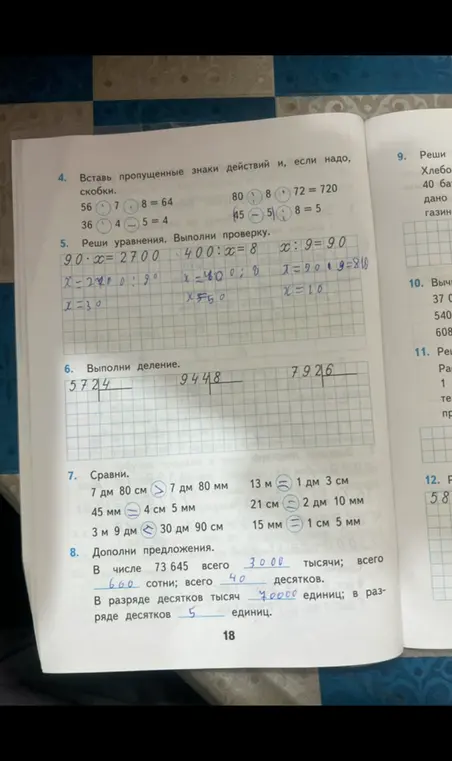 4. Вставь пропущенные знаки действий и, если надо,
скобки.
56 : 7 · 8 = 64
80 : 8 · 72 = 720
36 : 4 – 5 = 4
(45 – 5) : 8 = 5
5. Реши уравнения. Выполни проверку.
90 · x = 2700 400 : x = 8 x : 9 = 90
x = 2700 : 90 x = 400 : 8 x = 90 · 9 = 810
x = 30 x = 50 x = 10
6. Выполни деление.
572 4 944 8 792 6
7. Сравни.
7 дм 80 см > 7 дм 80 мм
13 м = 1 дм 3 см
45 мм = 4 см 5 мм
21 см = 2 дм 10 мм
3 м 9 дм < 30 дм 90 см
15 мм = 1 см 5 мм
8. Дополни предложения.
В числе 73 645 всего 3000 тысячи; всего
600 сотни; всего 40 десятков.
В разряде десятков тысяч 70000 единиц; в раз-
ряде десятков 5 единиц.
18
9. Реши
Хлебо
40 ба
дано
газин
10. Вычи
37 0
540
608
11. Ре
Ра
1
те
пр
12. Р
58